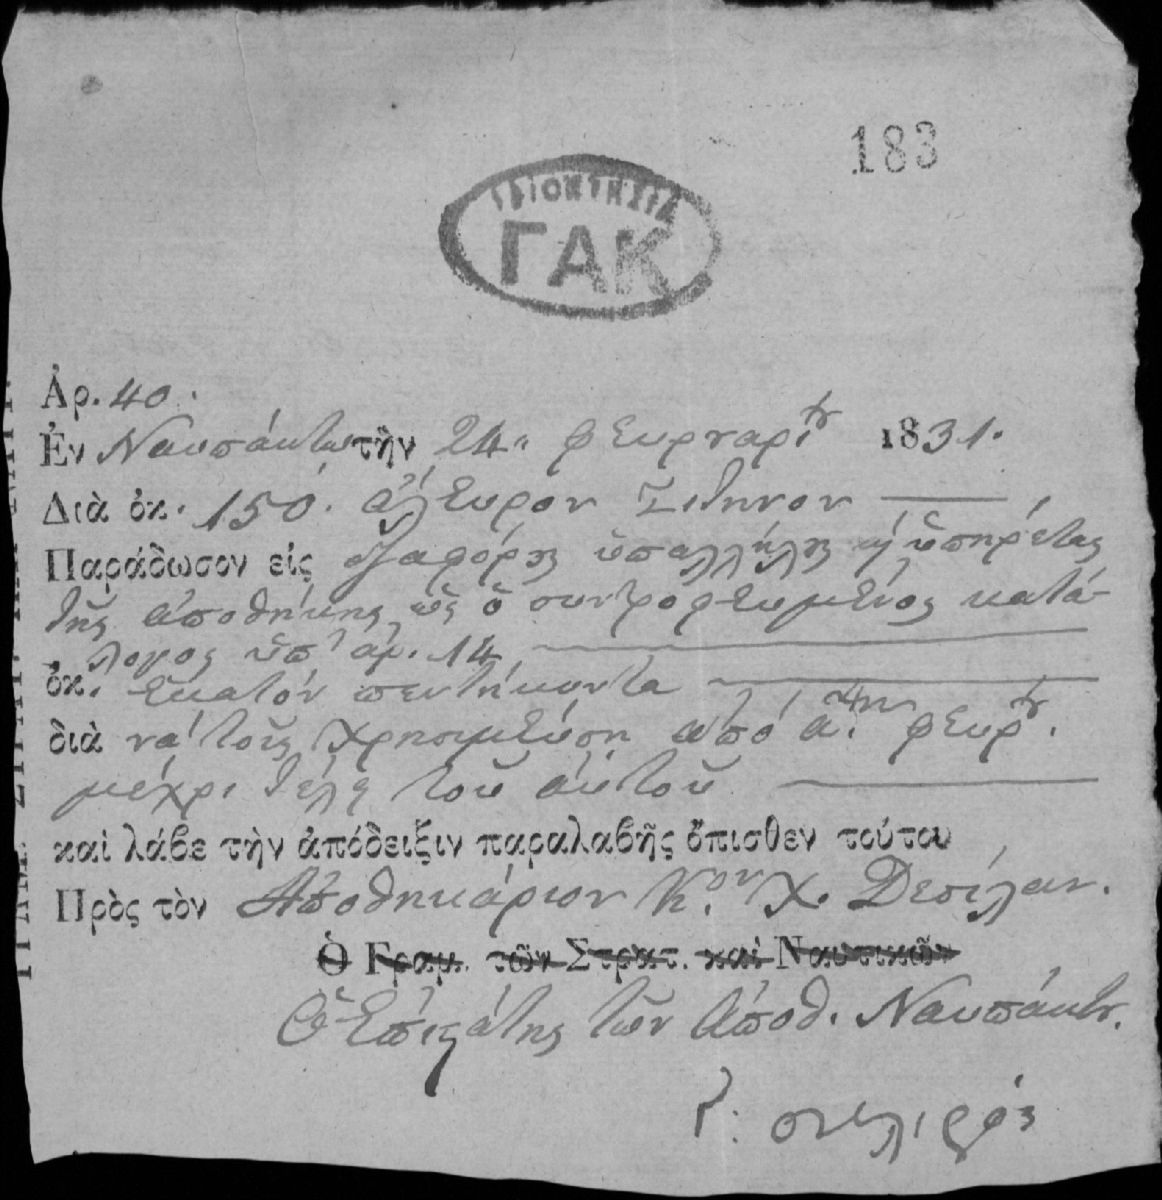 183
ΙΔΙΟΚΤΗΣΙΑ
ΓΑΚ
Ἀρ. 40.
Ἐν Ναυπάκτω τὴν 24 φευρναρίȣ 1831.
Διὰ ὀκ. 150. ἀλευρον Σιτηνον
Παράδωσον εἰς διαφόρȣς ὑπαλλήλȣς ἡ ὑπηρέτας
τῆς ἀποθήκης ὡς ὁ συντροφευμένος κατά-
λογος ὑπ' ἀρ. 14
ὀκ. ἑκατόν πεντήκοντα
διὰ νά τοῖς χρησιμεύση ἀπό α.ης φευρȣ.
μέχρι τέλȣς τοῦ αὐτοῦ
καὶ λάβε τὴν ἀπόδειξιν παραλαβῆς ὄπισθεν τούτου
Πρὸς τὸν Ἀποθηκάριον Κ.ον Χ. Δεσίλαν.
Ὁ Γραμ. τῶν Στρατ. καὶ Ναυτικῶν
Ὁ Ἐπιϛάτης τῶν Ἀποθ. Ναυπάκτȣ.